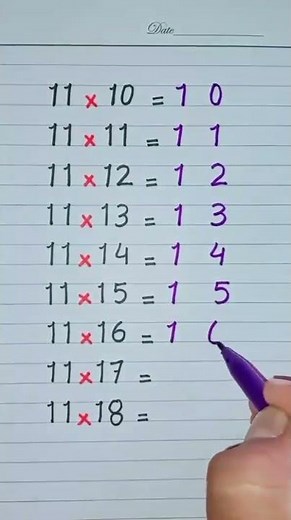 Date
11 × 10 = 1 0
11 × 11 = 1 1
11 × 12 = 1 2
11 × 13 = 1 3
11 × 14 = 1 4
11 × 15 = 1 5
11 × 16 = 1
11 × 17 =
11 × 18 =